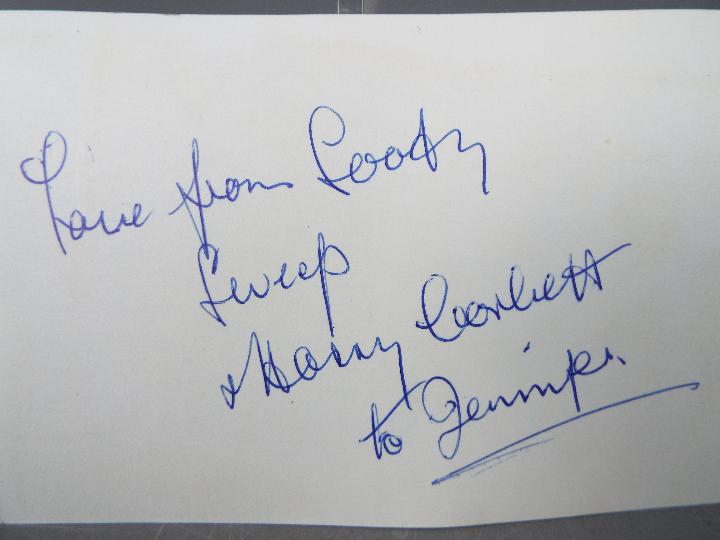 Love from Sooty
Sweep
& Harry Corbett
to Jennifer.